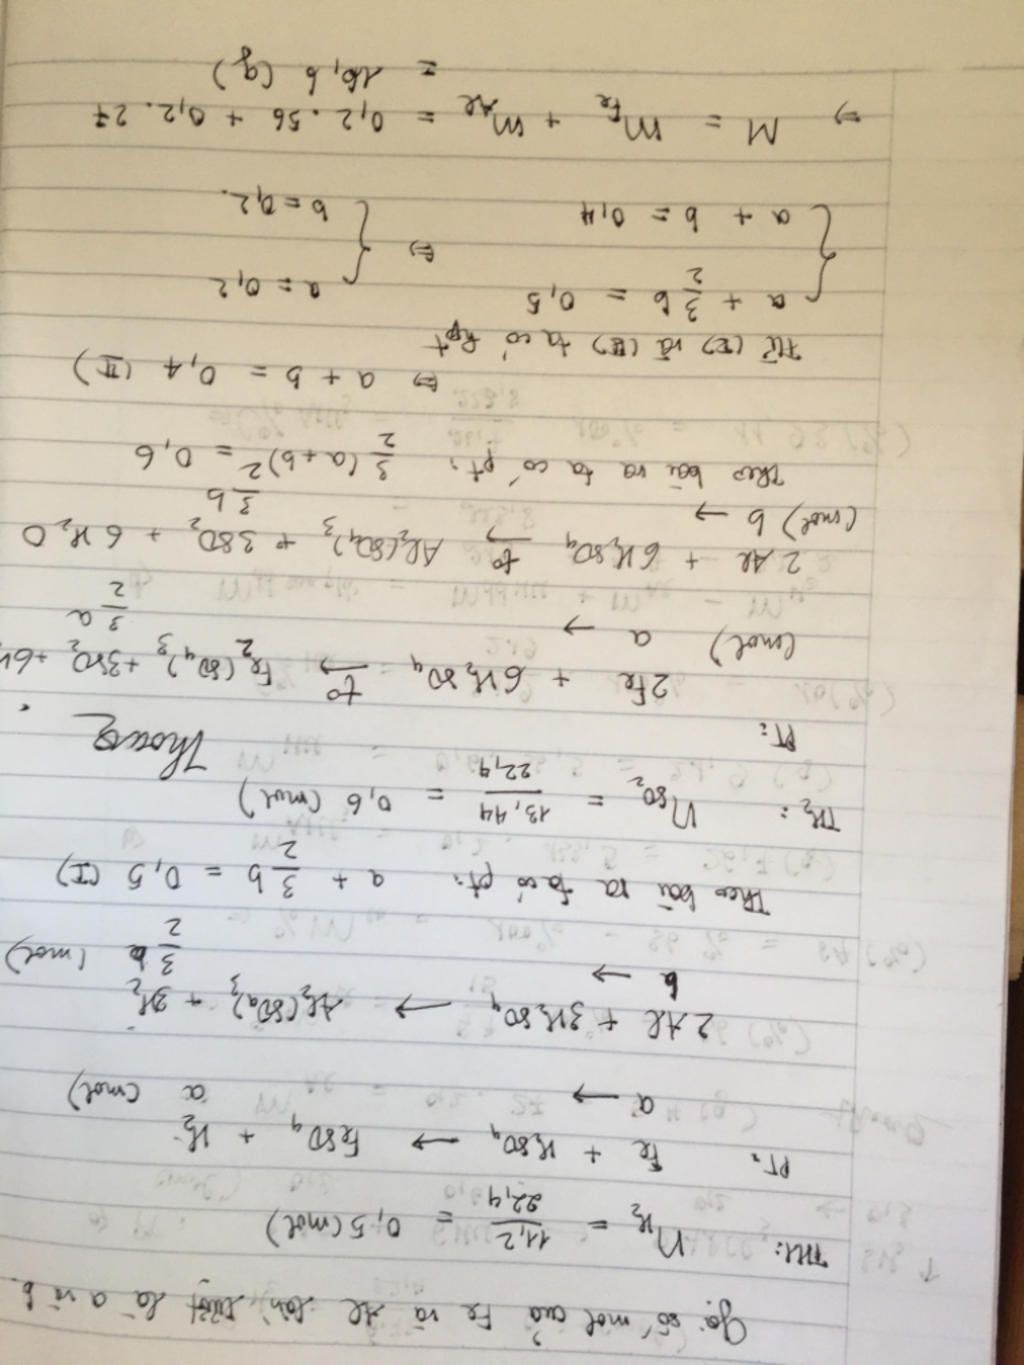 Gọi số mol của Fe và Al lần lượt là a và b.
TH1: nH₂ = 11,2/22,4 = 0,5 (mol)
PT: Fe + H₂SO₄ → FeSO₄ + H₂
a → a (mol)
2Al + 3H₂SO₄ → Al₂(SO₄)₃ + 3H₂
b → 3/2 b (mol)
Theo bài ra ta có pt: a + 3/2 b = 0,5 (I)
TH2: nSO₂ = 13,44/22,4 = 0,6 (mol)
PT:
2Fe + 6H₂SO₄ →(t°) Fe₂(SO₄)₃ + 3SO₂ + 6H
(mol) a → 3/2 a
2Al + 6H₂SO₄ →(t°) Al₂(SO₄)₃ + 3SO₂ + 6H₂O
(mol) b → 3/2 b
Theo bài ra ta có pt: 3/2 (a+b) = 0,6
⇔ a + b = 0,4 (II)
Từ (I) và (II) ta có hpt
{ a + 3/2 b = 0,5 ⇔ { a = 0,2
a + b = 0,4 b = 0,2.
⇒ M = mFe + mAl = 0,2 . 56 + 0,2 . 27
= 16,6 (g)